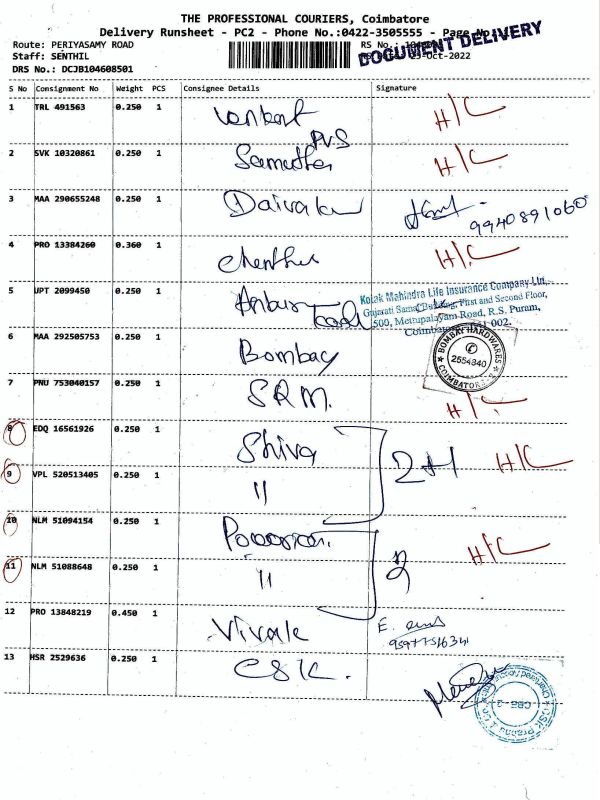 THE PROFESSIONAL COURIERS, Coimbatore
Delivery Runsheet - PC2 - Phone No.:0422-3505555 - Page No.
DOCUMENT DELIVERY
Route: PERIYASAMY ROAD
RS No.:
Staff: SENTHIL
-Oct-2022
DRS No.: DCJB104608501
S No Consignment No Weight PCS Consignee Details Signature
1 TRL 491563 0.250 1 H/C
2 SVK 10320861 0.250 1 H/C
3 MAA 290655248 0.250 1 9940891060
4 PRO 13384260 0.360 1 H/C
5 UPT 2099450 0.250 1
Kotak Mahindra Life Insurance Company Ltd.,
Gujarati Samaj Building, First and Second Floor,
500, Mettupalayam Road, R.S. Puram,
6 MAA 292505753 0.250 1 Bombay
BOMBAY HARDWARES
2554340
COIMBATORE-2
7 PNU 753040157 0.250 1 SRM. H/C
8 EDQ 16561926 0.250 1 Shiva
9 VPL 520513405 0.250 1 11 H/C
10 NLM 51094154 0.250 1
11 NLM 51088648 0.250 1 11 2 H/C
12 PRO 13848219 0.450 1 Vivak
13 HSR 2529636 0.250 1